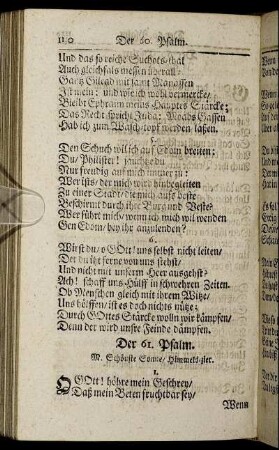 110 Der 60. Psalm.
Und das so reiche Suchots-thal
Auch gleichfals messen überall.
Gantz Gilead wit samt Manassen
Ist mein: und wie ich wohl vermercke/
Bleibt Ephraim meins Hauptes Stärcke;
Das Recht spricht Juda: Moabs Gassen
Hab ich zum Waschtopf werden lassen.
5.
Den Schuch will ich auf Edom breiten;
Du/ Philister! jauchze du
Nur freudig auf mich immer zu:
Wer ists/ der mich wird hinbegleiten
Zu einer Stadt/ die mich aufs beste
Beschirmt durch ihre Burg und Veste?
Wer führt mich/ wenn ich mich wil wenden
Gen Edom/ bey ihr anzulenden?
6.
Wirst du/ o GOtt/ uns selbst nicht leiten/
Der du itzt ferne von uns stehst/
Und nicht mit unserm Heer ausgehst?
Ach! schaff uns Hülff in schwehren Zeiten.
Ob Menschen gleich mit ihrem Witze/
Uns hülffen/ ist es doch nichts nütze;
Durch GOttes Stärcke wolln wir kämpfen/
Denn der wird unsre Feinde dämpfen.
Der 61. Psalm.
M. Schönste Sonne/ Himmelszier.
1.
O GOtt! höhre mein Geschrey/
Daß mein Beten fruchtbar sey/
Wenn